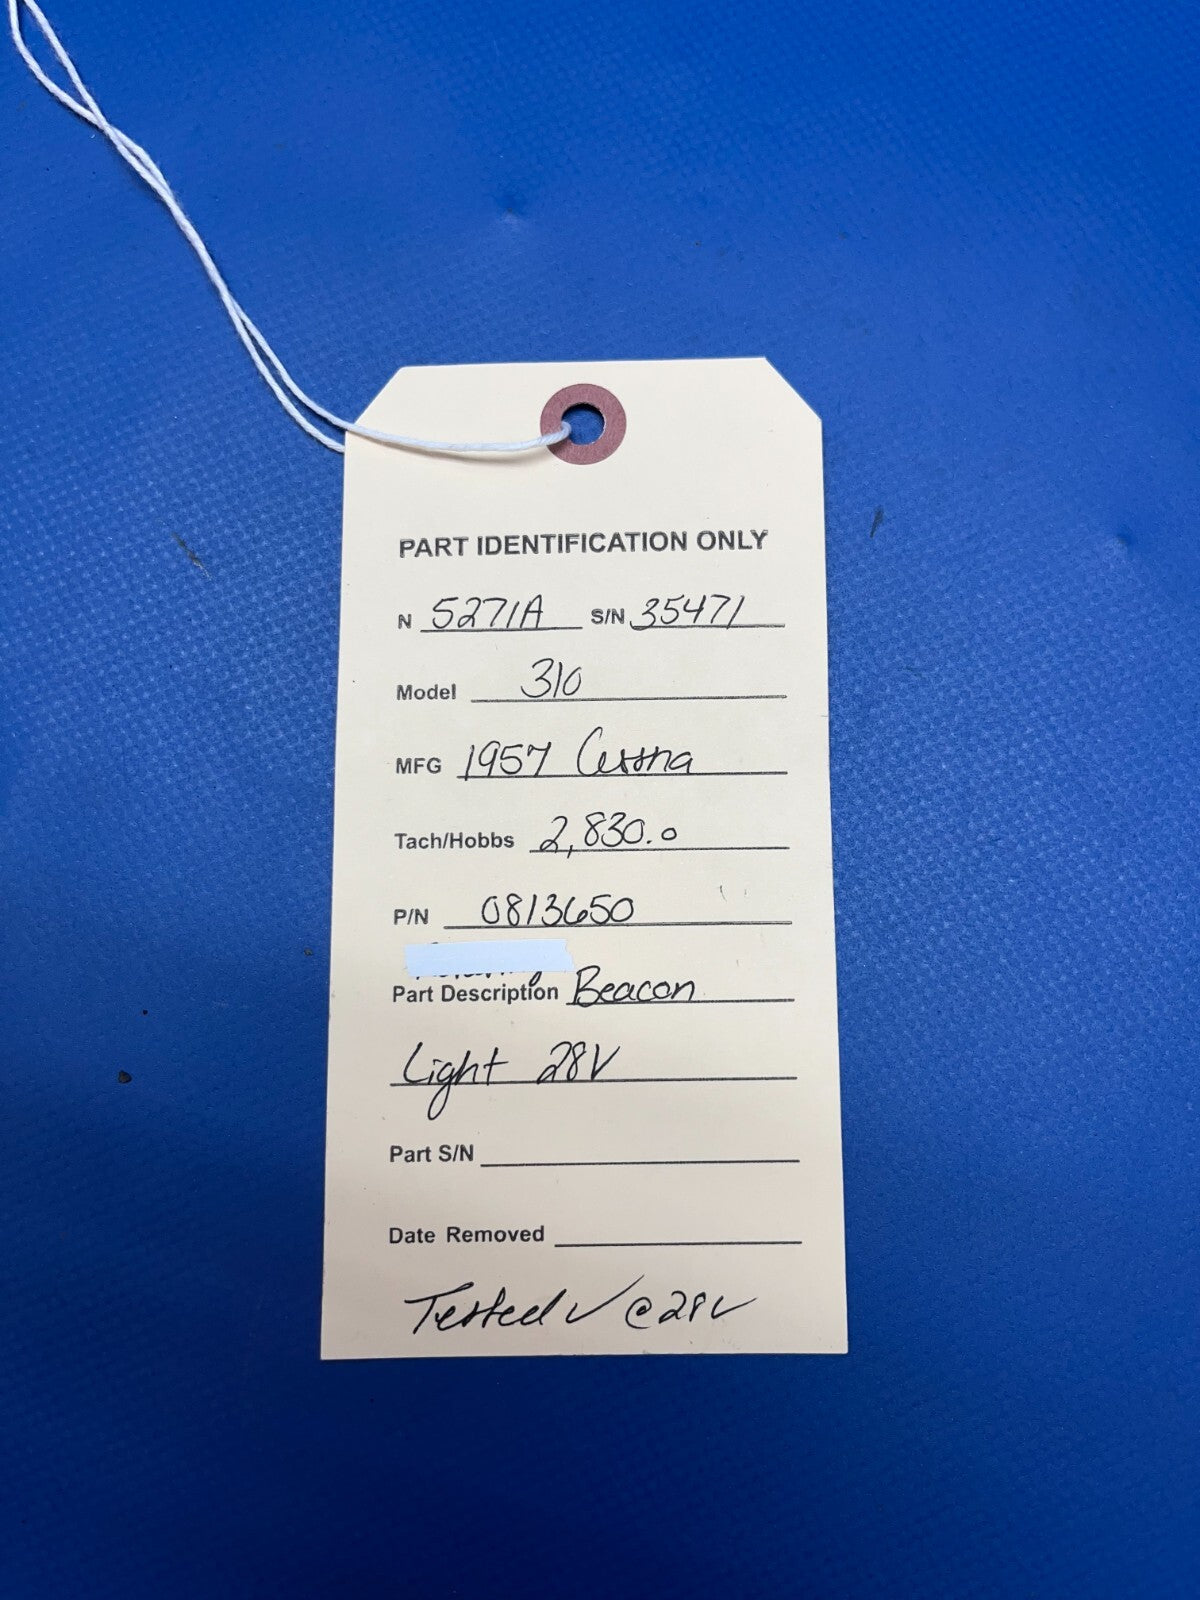 PART IDENTIFICATION ONLY
N 5271A S/N 35471
Model 310
MFG 1957 Cessna
Tach/Hobbs 2,830.0
P/N 0813650
Part Description Beacon
Light 28V
Part S/N
Date Removed
Tested ✓ @ 28V